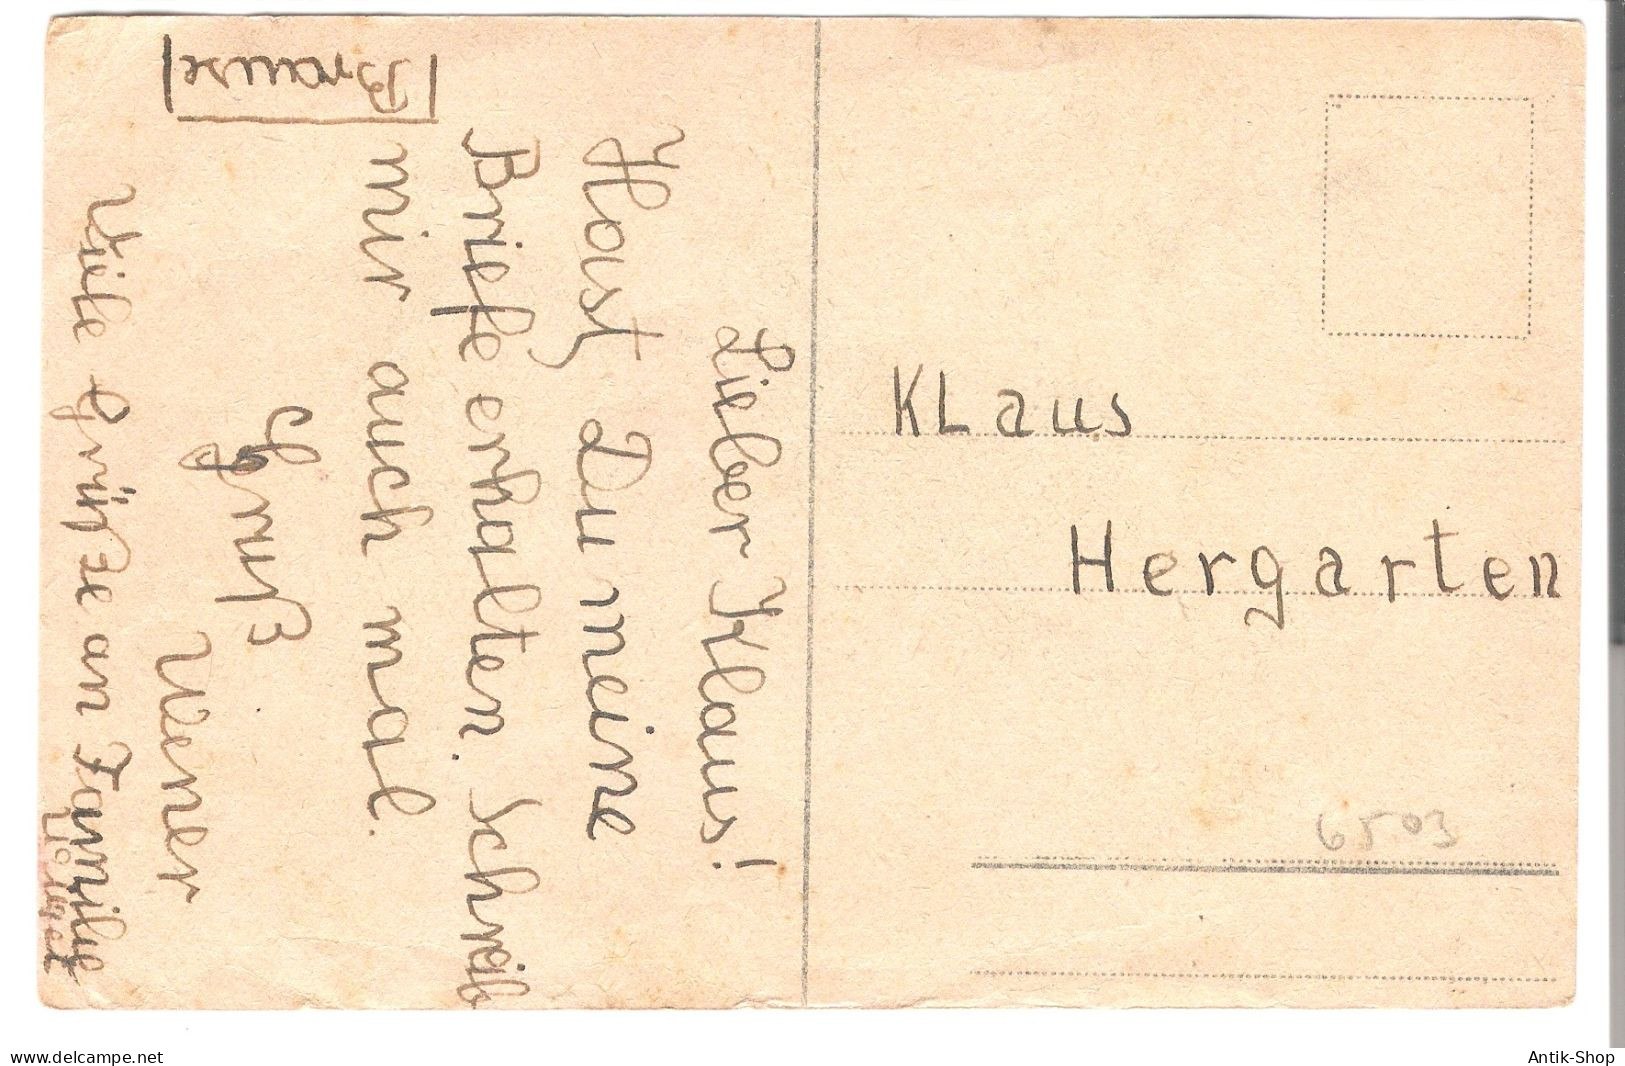 Lieber Klaus!
Hast Du meine
Briefe erhalten. Schreib
mir auch mal.
Gruß
Wener
Viele Grüße an Familie
Brause
KLaus
Hergarten
6503
delcampe.net
Antik-Shop